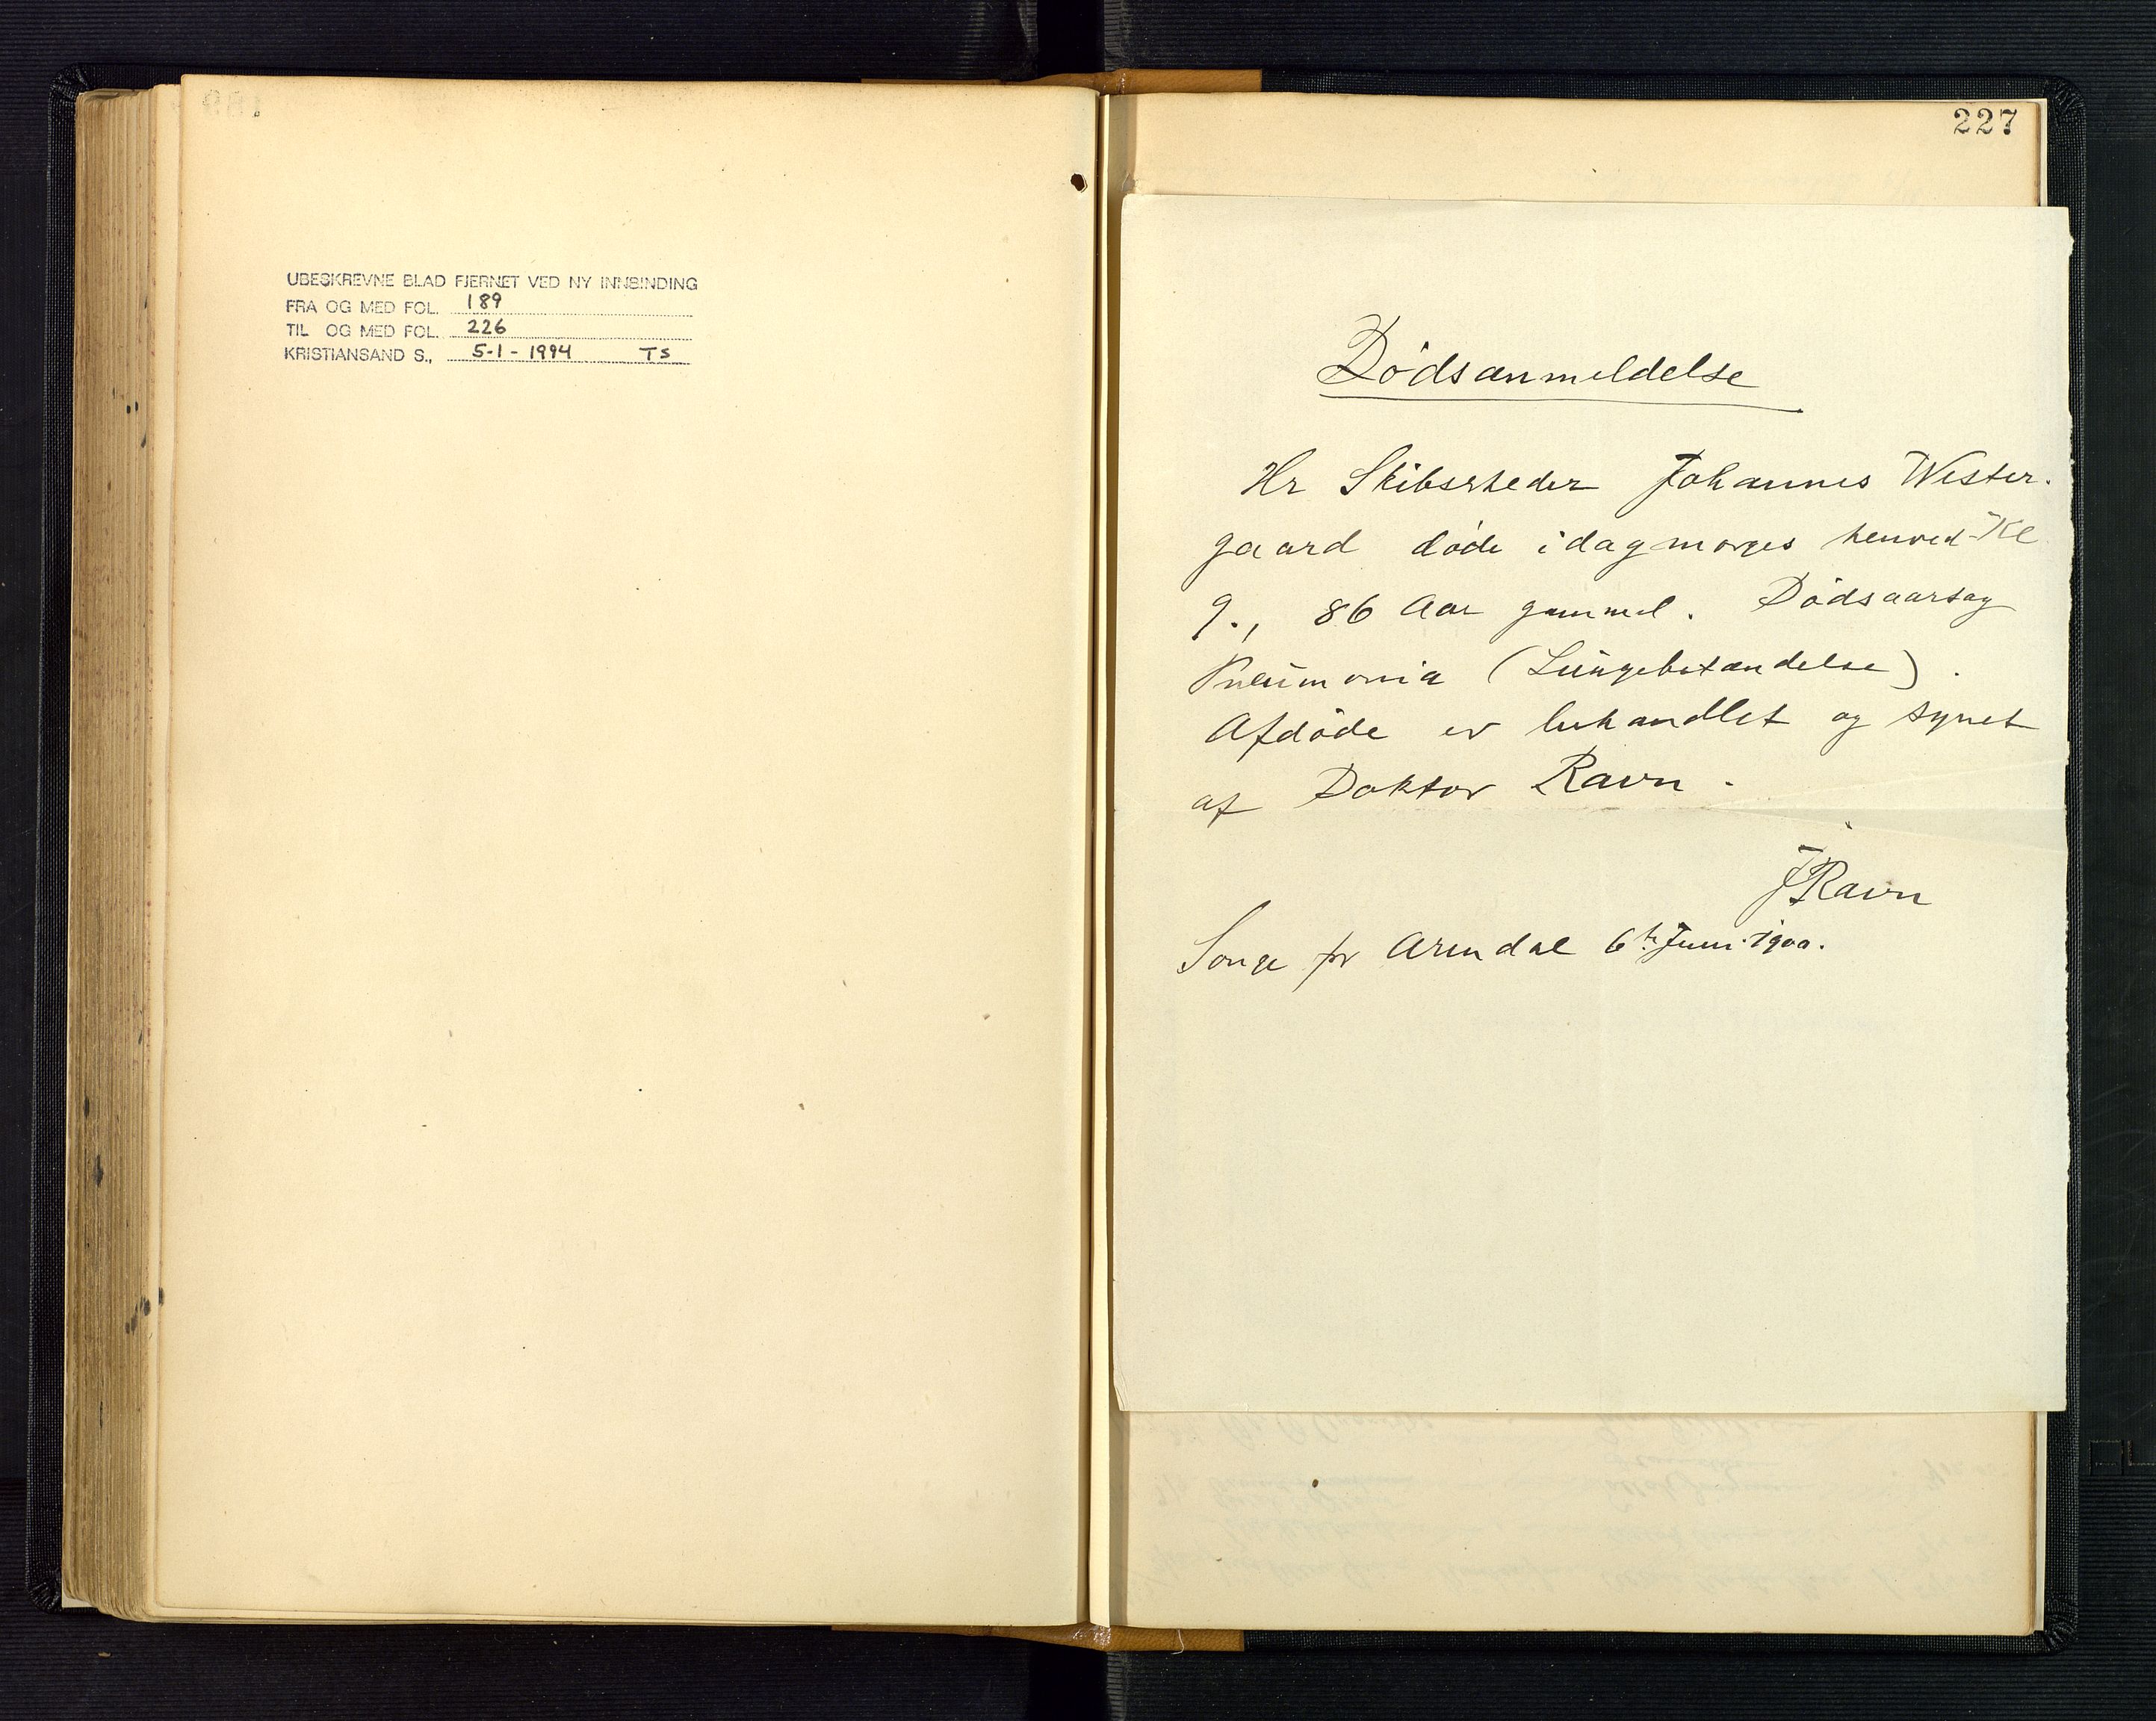 UBESKREVNE BLAD FJERNET VED NY INNBINDING
FRA OG MED FOL. 189
TIL OG MED FOL. 226
KRISTIANSAND S., 5-1-1994 TS
227
Dödsanmeldelse
Hr Skibsrheder Johannes Wester.
gaard döde idagmorges henved Kl
9., 86 Aar gammel. Dödsaarsag
Pneumonia (Lungebetændelse).
Afdöde er behandlet og synet
af Doktor Ravn.
J Ravn
Songe pr Arendal 6te Juni 1900.